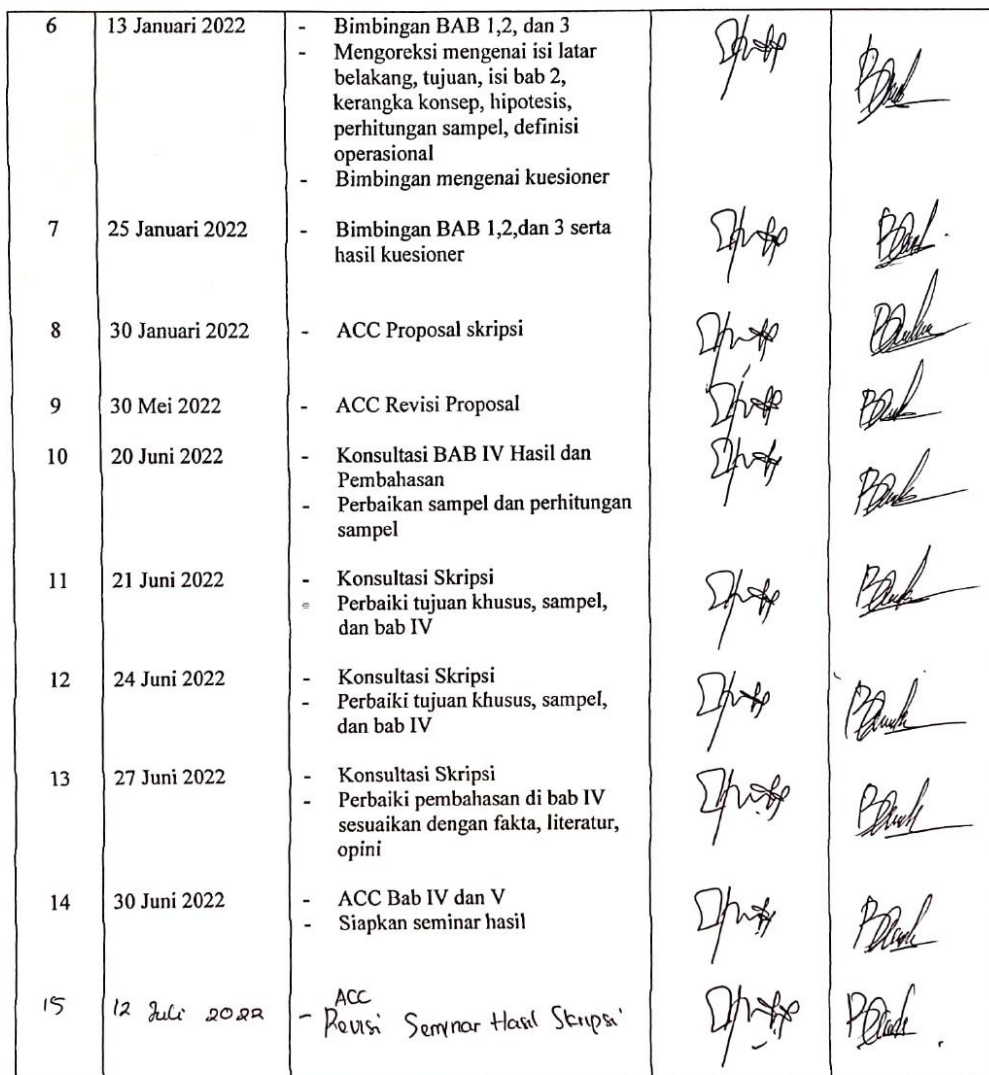 6 13 Januari 2022 - Bimbingan BAB 1,2, dan 3
- Mengoreksi mengenai isi latar
belakang, tujuan, isi bab 2,
kerangka konsep, hipotesis,
perhitungan sampel, definisi
operasional
- Bimbingan mengenai kuesioner
7 25 Januari 2022 - Bimbingan BAB 1,2,dan 3 serta
hasil kuesioner
8 30 Januari 2022 - ACC Proposal skripsi
9 30 Mei 2022 - ACC Revisi Proposal
10 20 Juni 2022 - Konsultasi BAB IV Hasil dan
Pembahasan
- Perbaikan sampel dan perhitungan
sampel
11 21 Juni 2022 - Konsultasi Skripsi
- Perbaiki tujuan khusus, sampel,
dan bab IV
12 24 Juni 2022 - Konsultasi Skripsi
- Perbaiki tujuan khusus, sampel,
dan bab IV
13 27 Juni 2022 - Konsultasi Skripsi
- Perbaiki pembahasan di bab IV
sesuaikan dengan fakta, literatur,
opini
14 30 Juni 2022 - ACC Bab IV dan V
- Siapkan seminar hasil
ACC
15 12 Juli 2022 - Revisi Seminar Hasil Skripsi